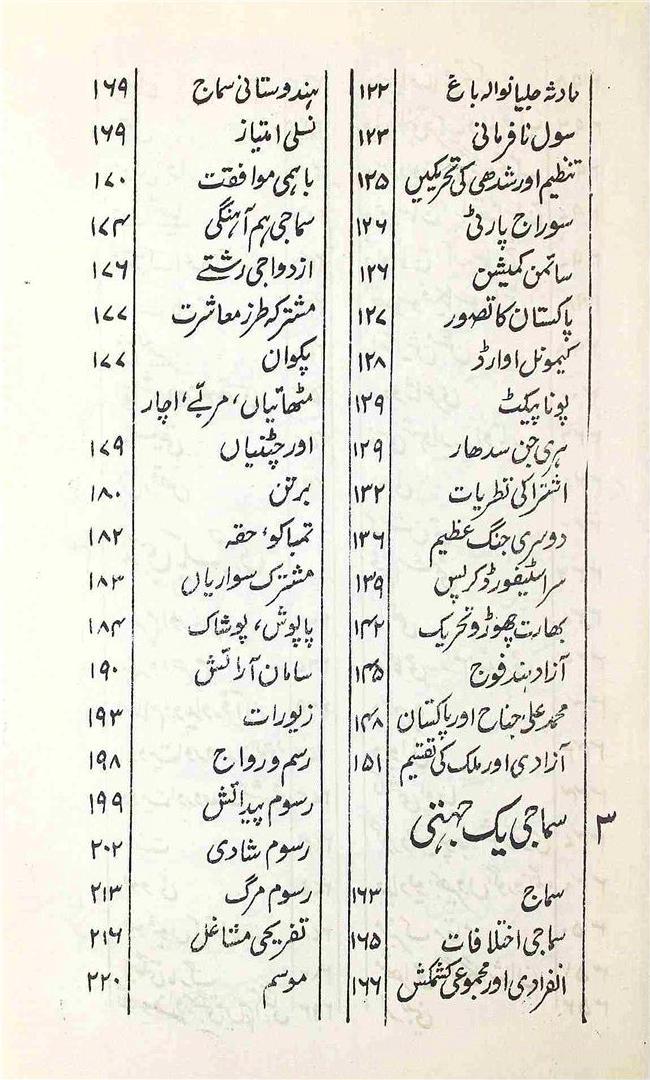 حادثہ جلیانوالہ باغ ۱۲۲
سول نافرمانی ۱۲۳
تنظیم اور شدھی کی تحریکیں ۱۲۵
سوراج پارٹی ۱۲۶
سائمن کمیشن ۱۲۶
پاکستان کا تصور ۱۲۷
کیمونل اوارڈ ۱۲۸
پونا پیکٹ ۱۲۹
ہری جن سدھار ۱۲۹
اشتراکی نظریات ۱۳۲
دوسری جنگ عظیم ۱۳۶
سر اسٹیفورڈ کرپس ۱۳۹
بھارت چھوڑو تحریک ۱۴۲
آزاد ہند فوج ۱۴۵
محمد علی جناح اور پاکستان ۱۴۸
آزادی اور ملک کی تقسیم ۱۵۱
۳ سماجی یک جہتی
سماج ۱۶۳
سماجی اختلافات ۱۶۵
انفرادی اور مجموعی کشمکش ۱۶۶
ہندوستانی سماج ۱۶۹
نسلی امتیاز ۱۶۹
باہمی موافقت ۱۷۰
سماجی ہم آہنگی ۱۷۴
ازدواجی رشتے ۱۷۶
مشترکہ طرز معاشرت ۱۷۷
پکوان ۱۷۷
مٹھائیاں، مربّے، اچار
اور چٹنیاں ۱۷۹
برتن ۱۸۰
تمباکو، حقہ ۱۸۲
مشترک سواریاں ۱۸۳
پاپوش، پوشاک ۱۸۴
سامان آرائش ۱۹۰
زیورات ۱۹۳
رسم و رواج ۱۹۸
رسوم پیدائش ۱۹۹
رسوم شادی ۲۰۲
رسوم مرگ ۲۱۳
تفریحی مشاغل ۲۱۶
موسم ۲۲۰